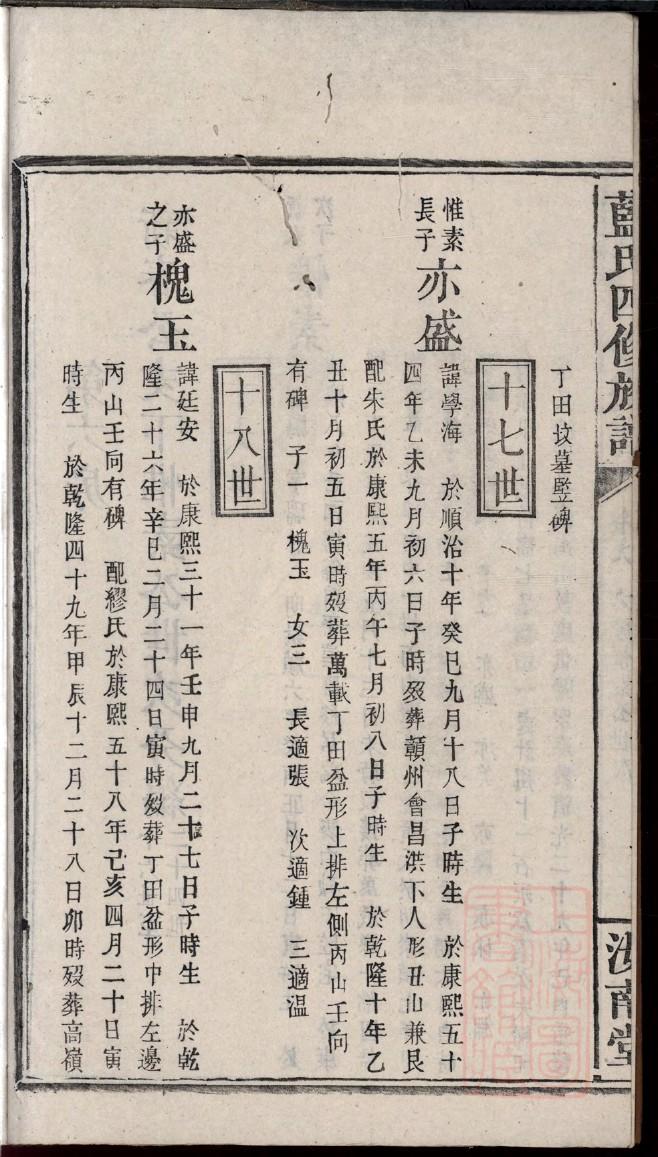 藍氏四修族譜
汝南堂
丁田墳墓竪碑
十七世
惟素
長子
亦盛
諱學海　於順治十年癸巳九月十八日子時生　於康熙五十
四年乙未九月初六日子時歿葬贛州會昌洪下人形丑山兼艮
配朱氏於康熙五年丙午七月初八日子時生　於乾隆十年乙
丑十月初五日寅時歿葬萬載丁田盆形上排左側丙山壬向
有碑　子一　槐玉　女三　長適張　次適鍾　三適温
十八世
亦盛
之子
槐玉
諱廷安　於康熙三十一年壬申九月二十七日子時生　於乾
隆二十六年辛巳二月二十四日寅時歿葬丁田盆形中排左邊
丙山壬向有碑　配繆氏於康熙五十八年己亥四月二十日寅
時生　於乾隆四十九年甲辰十二月二十八日卯時歿葬高嶺